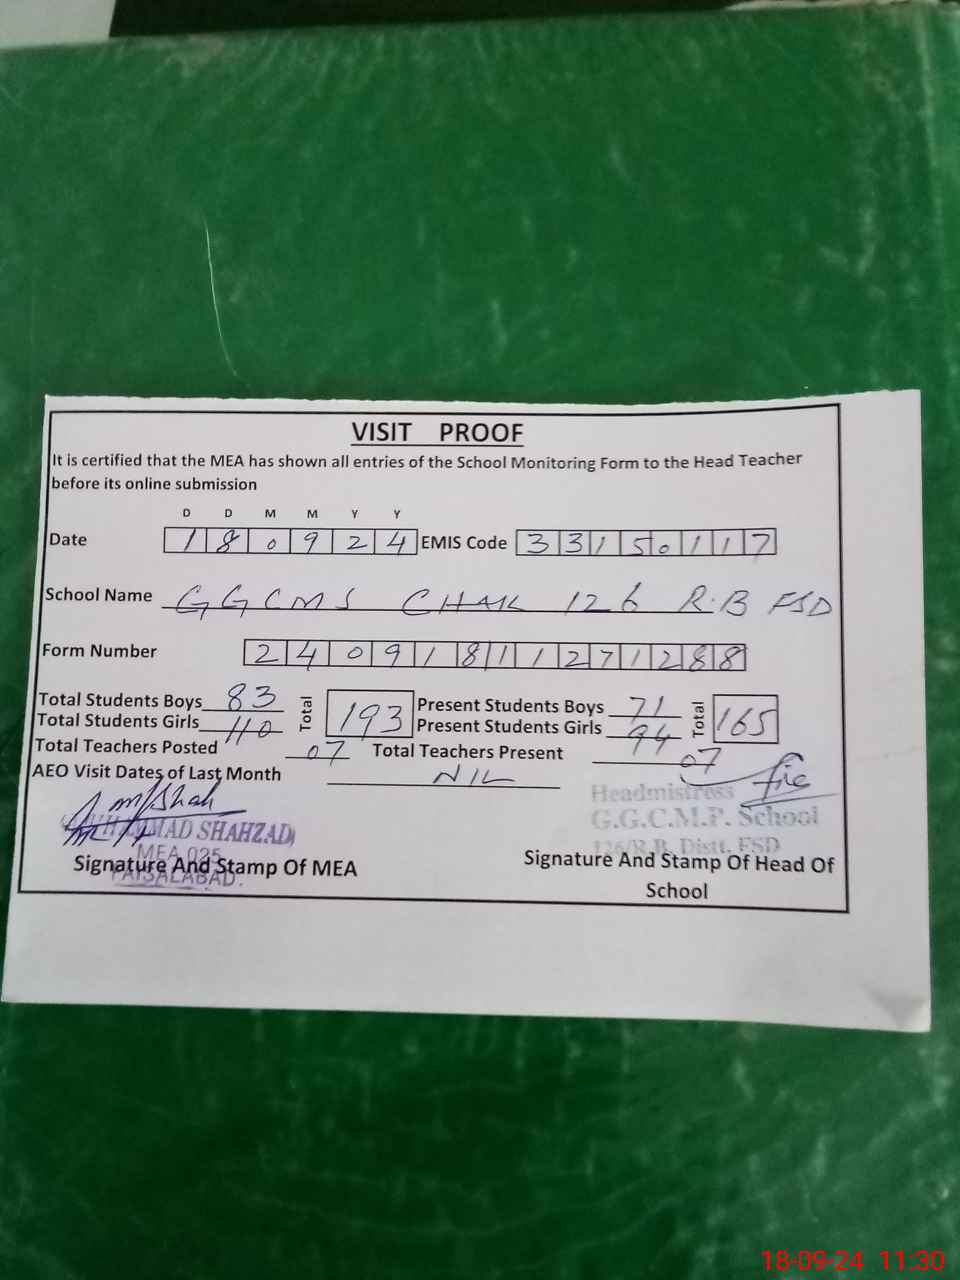 VISIT PROOF
It is certified that the MEA has shown all entries of the School Monitoring Form to the Head Teacher
before its online submission
D D M M Y Y
Date 1 8 0 9 2 4 EMIS Code 3 3 1 5 0 1 1 7
School Name GGCMS CHAK 126 R.B FSD
Form Number 2 4 0 9 1 8 1 1 2 7 1 2 8 8
Total Students Boys 83 Total 193 Present Students Boys 71 Total 165
Total Students Girls 110 Present Students Girls 94
Total Teachers Posted 07 Total Teachers Present 07
AEO Visit Dates of Last Month NIL
Headmistress
MUHAMMAD SHAHZAD G.G.C.M.P. School
MEA 025 126/R.B. Distt. FSD
Signature And Stamp Of MEA Signature And Stamp Of Head Of
FAISALABAD. School
18-09-24 11:30